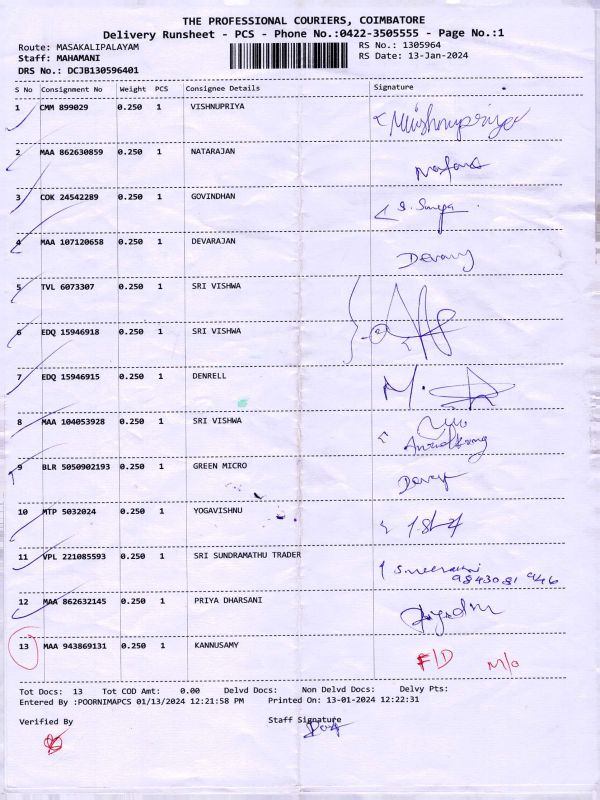 THE PROFESSIONAL COURIERS, COIMBATORE
Delivery Runsheet - PCS - Phone No.:0422-3505555 - Page No.:1
Route: MASAKALIPALAYAM RS No.: 1305964
Staff: MAHAMANI RS Date: 13-Jan-2024
DRS No.: DCJB130596401
S No Consignment No Weight PCS Consignee Details Signature
1 CMM 899029 0.250 1 VISHNUPRIYA Vishnupriya
2 MAA 862630859 0.250 1 NATARAJAN
3 COK 24542289 0.250 1 GOVINDHAN
4 MAA 107120658 0.250 1 DEVARAJAN
5 TVL 6073307 0.250 1 SRI VISHWA
6 EDQ 15946918 0.250 1 SRI VISHWA
7 EDQ 15946915 0.250 1 DENRELL
8 MAA 104053928 0.250 1 SRI VISHWA
9 BLR 5050902193 0.250 1 GREEN MICRO
10 MTP 5032024 0.250 1 YOGAVISHNU
11 VPL 221085593 0.250 1 SRI SUNDRAMATHU TRADER
12 MAA 862632145 0.250 1 PRIYA DHARSANI
13 MAA 943869131 0.250 1 KANNUSAMY F/D M/O
Tot Docs: 13 Tot COD Amt: 0.00 Delvd Docs: Non Delvd Docs: Delvy Pts:
Entered By :POORNIMAPCS 01/13/2024 12:21:58 PM Printed On: 13-01-2024 12:22:31
Verified By Staff Signature